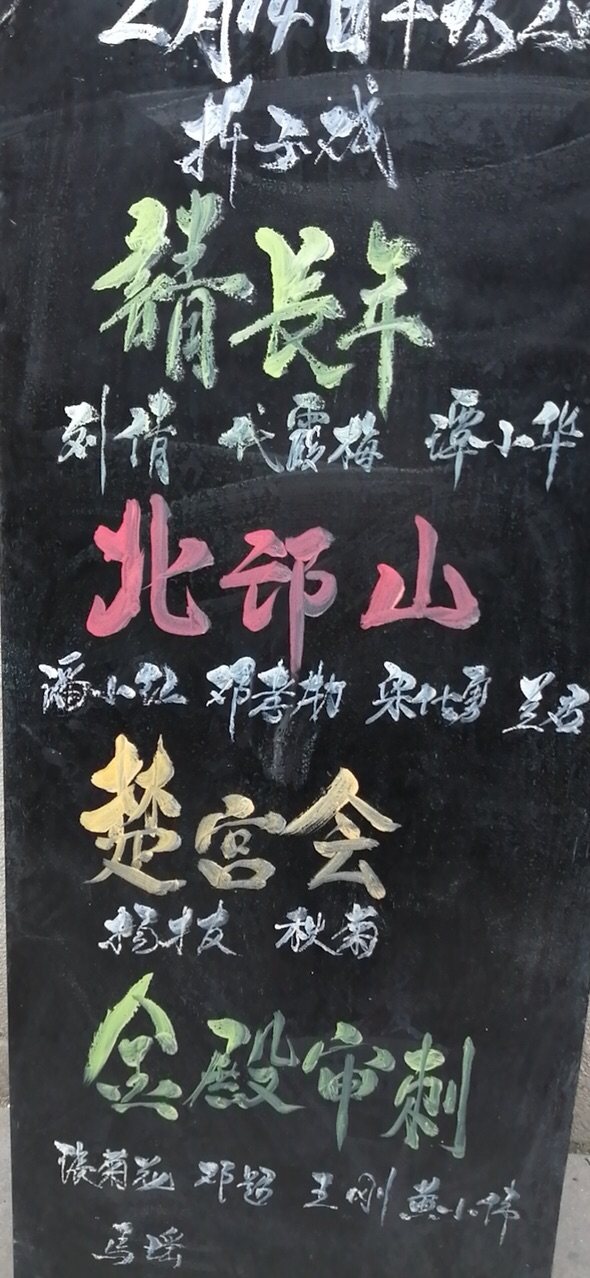 2月14日午场
折子戏
請長年
刘倩 代霞梅 谭小华
北邙山
潘小红 邓孝勒 宋仕勇 兰君
楚宫会
杨枝 秋菊
金殿审刺
淡菊花 邓超 王刚 黄小伟
马瑶